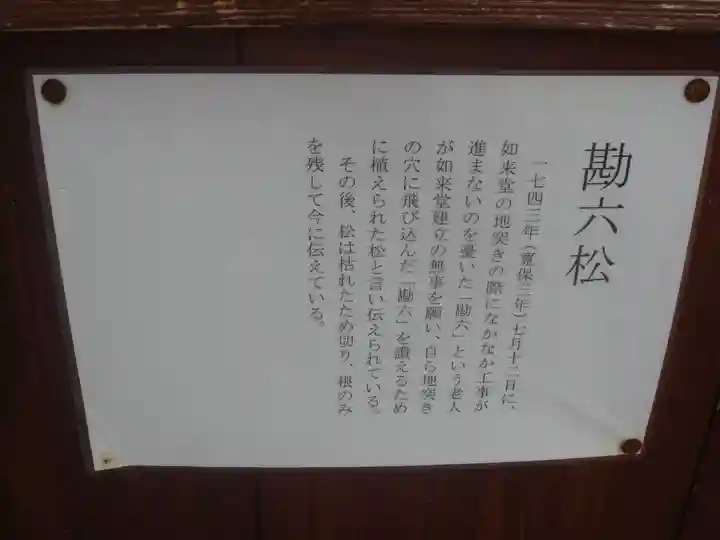 勘六松
一七四三年(寛保三年)七月十二日に、
如来堂の地突きの際になかなか工事が
進まないのを憂いた「勘六」という老人
が如来堂建立の無事を願い、自ら地突き
の穴に飛び込んだ「勘六」を讃えるため
に植えられた松と言い伝えられている。
その後、松は枯れたため切り、根のみ
を残して今に伝えている。